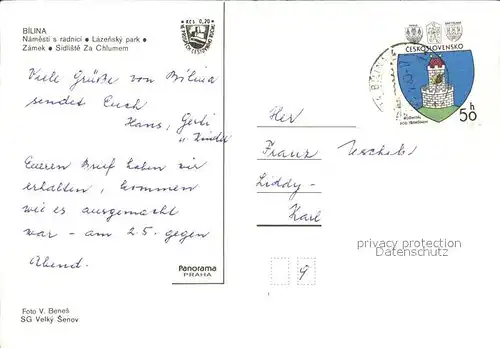 BÍLINA
Náměstí s radnicí • Lázeňský park •
Zámek • Sídliště Za Chlumem
Kčs 0,70
Viele Grüße von Bílina
sendet Euch
Hans, Gerti
u. Kinder
Eueren Brief haben wir
erhalten, kommen
wie es ausgemacht
war – am 2.5. gegen
Abend.
Panorama
PRAHA
Foto V. Beneš
SG Velký Šenov
ČESKOSLOVENSKO
50 h
Her
Franz
Liddy-
Karl
9
privacy protection
Datenschutz